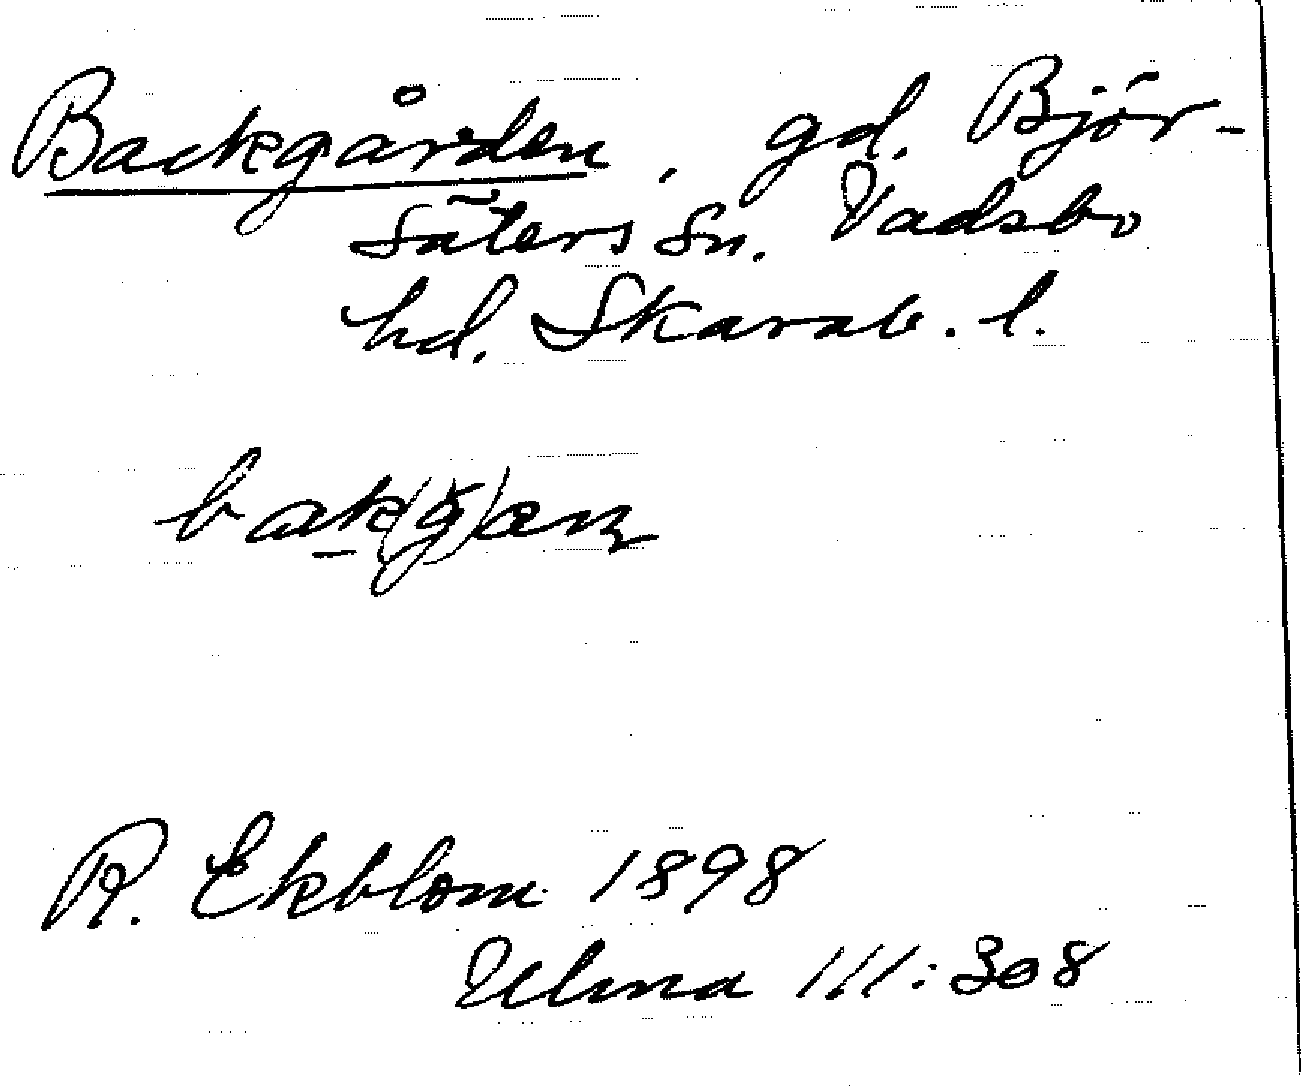 Backgården, gd. Björ-
säters sn. Vadsbo
hd. Skarab. l.
bak(g)æn
R. Ekblom 1898
Ulma 111:308